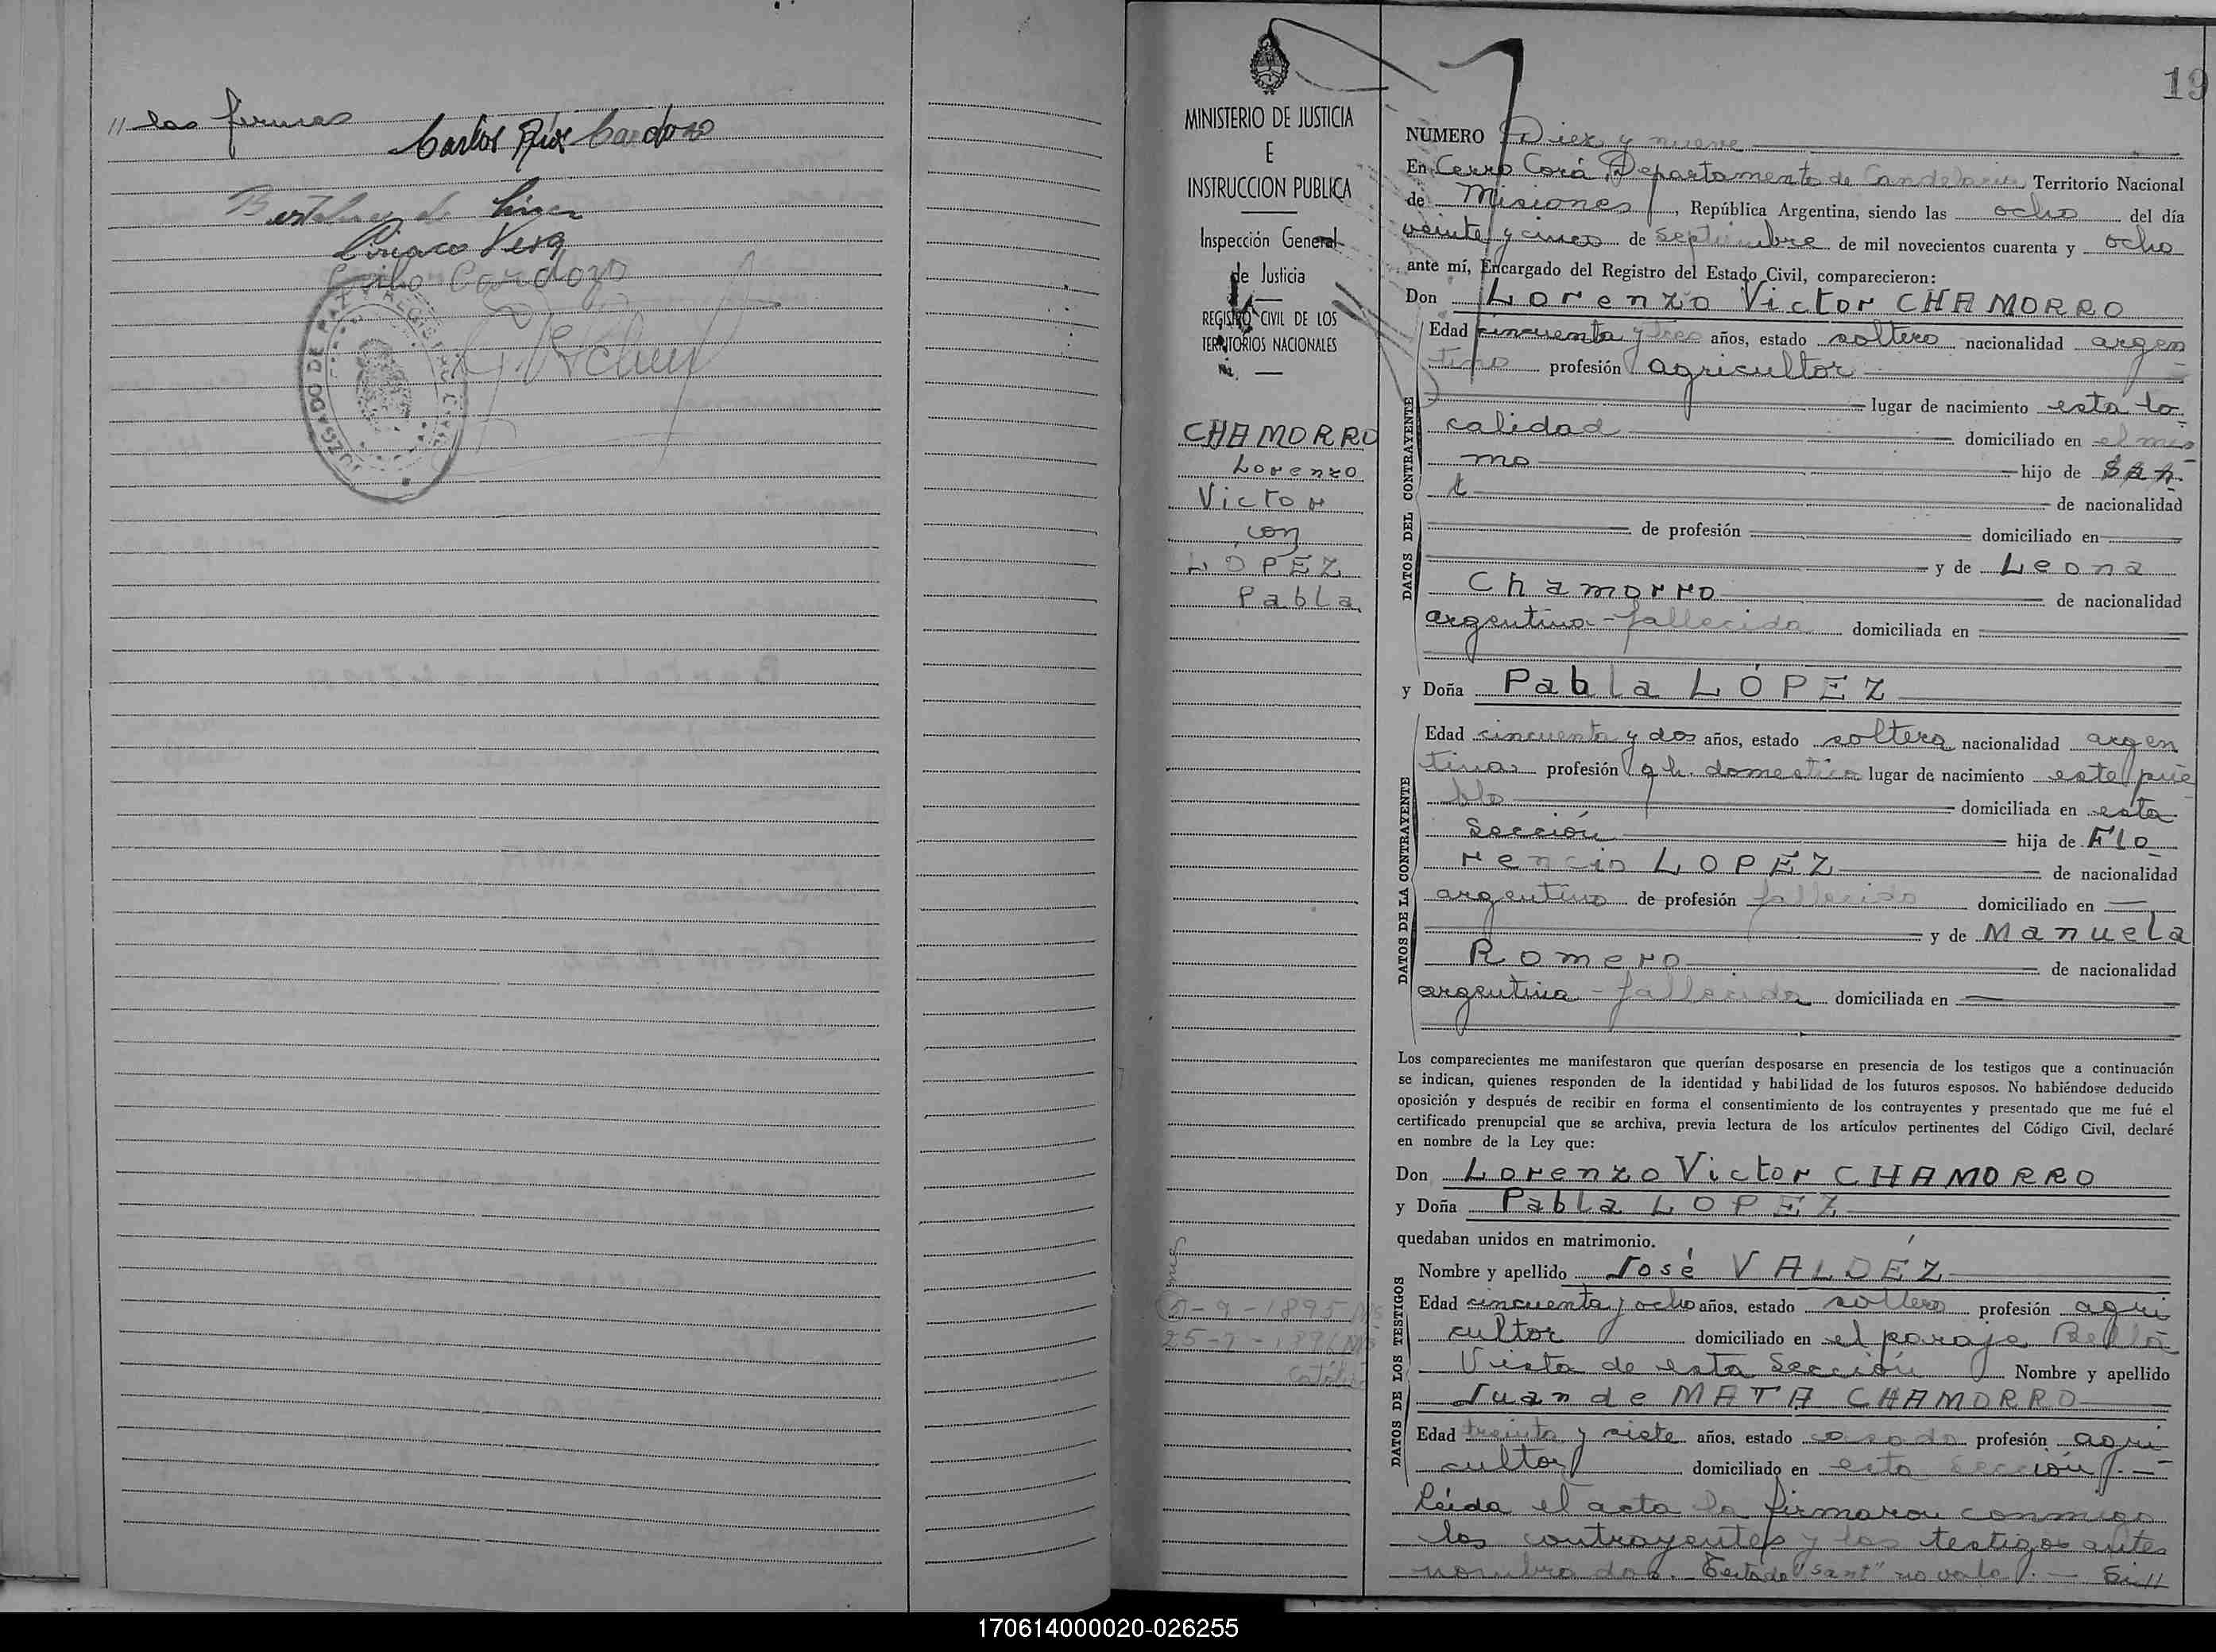 // las firmas
Carlos Ríos Cardozo
Ciriaco Vera
Cardozo
JUZGADO DE PAZ Y REGISTRO C
19
MINISTERIO DE JUSTICIA
E
INSTRUCCION PUBLICA
Inspección General
de Justicia
REGISTRO CIVIL DE LOS
TERRITORIOS NACIONALES
CHAMORRO
Lorenzo
Victor
con
LÓPEZ
Pabla
-9-1895
25-
Católic
NUMERO Diez y nueve
En Cerro Corá Departamento de Candelaria, Territorio Nacional
de Misiones, República Argentina, siendo las ocho del día
veinte y cinco de septiembre de mil novecientos cuarenta y ocho
ante mí, Encargado del Registro del Estado Civil, comparecieron:
Don Lorenzo Victor CHAMORRO
DATOS DEL CONTRAYENTE
Edad cincuenta y tres años, estado soltero nacionalidad argen
tino profesión agricultor
lugar de nacimiento esta lo
calidad domiciliado en el mis
mo hijo de San
t de nacionalidad
de profesión domiciliado en
y de Leona
Chamorro de nacionalidad
argentina - fallecida domiciliada en
y Doña Pabla LÓPEZ
DATOS DE LA CONTRAYENTE
Edad cincuenta y dos años, estado soltera nacionalidad argen
tina profesión q h. domestica lugar de nacimiento este pue
blo domiciliada en esta
Sección hija de Flo
rencio LOPEZ de nacionalidad
argentino de profesión fallecido domiciliado en
y de Manuela
Romero de nacionalidad
argentina - fallecida domiciliada en
Los comparecientes me manifestaron que querían desposarse en presencia de los testigos que a continuación
se indican, quienes responden de la identidad y habilidad de los futuros esposos. No habiéndose deducido
oposición y después de recibir en forma el consentimiento de los contrayentes y presentado que me fué el
certificado prenupcial que se archiva, previa lectura de los artículos pertinentes del Código Civil, declaré
en nombre de la Ley que:
Don Lorenzo Victor CHAMORRO
y Doña Pabla LOPEZ
quedaban unidos en matrimonio.
DATOS DE LOS TESTIGOS
Nombre y apellido José VALDÉZ
Edad cincuenta y ocho años, estado soltero profesión agri
cultor domiciliado en el paraje Bella
Vista de esta Sección Nombre y apellido
Juan de MATA CHAMORRO
Edad treinta y siete años, estado casado profesión agri
cultor domiciliado en esta sección.-
Leida el acta la firmaron conmigo
los contrayentes y los testigos antes
nombrados. Testado "Sant" no vale.-
170614000020-026255